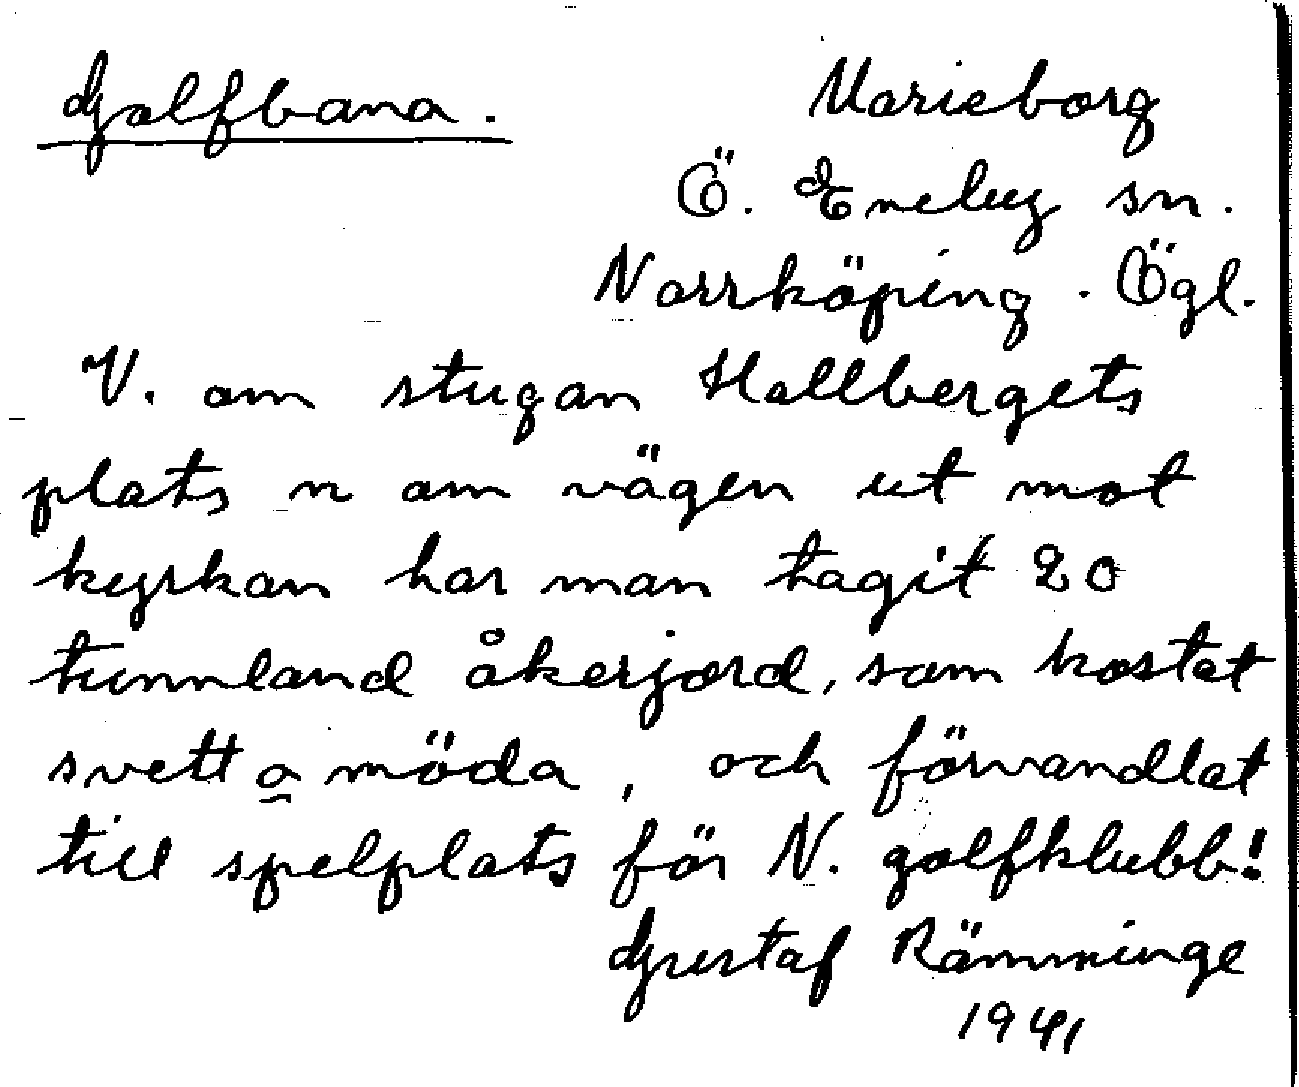 Golfbana.
Marieborg
Ö. Eneby sn.
Norrköping. Ögl.
V. om stugan Hallbergets
plats n om vägen ut mot
kyrkan har man tagit 20
tunnland åkerjord, som kostat
svett o möda, och förvandlat
till spelplats för N. golfklubb!
Gustaf Rämminge
1941